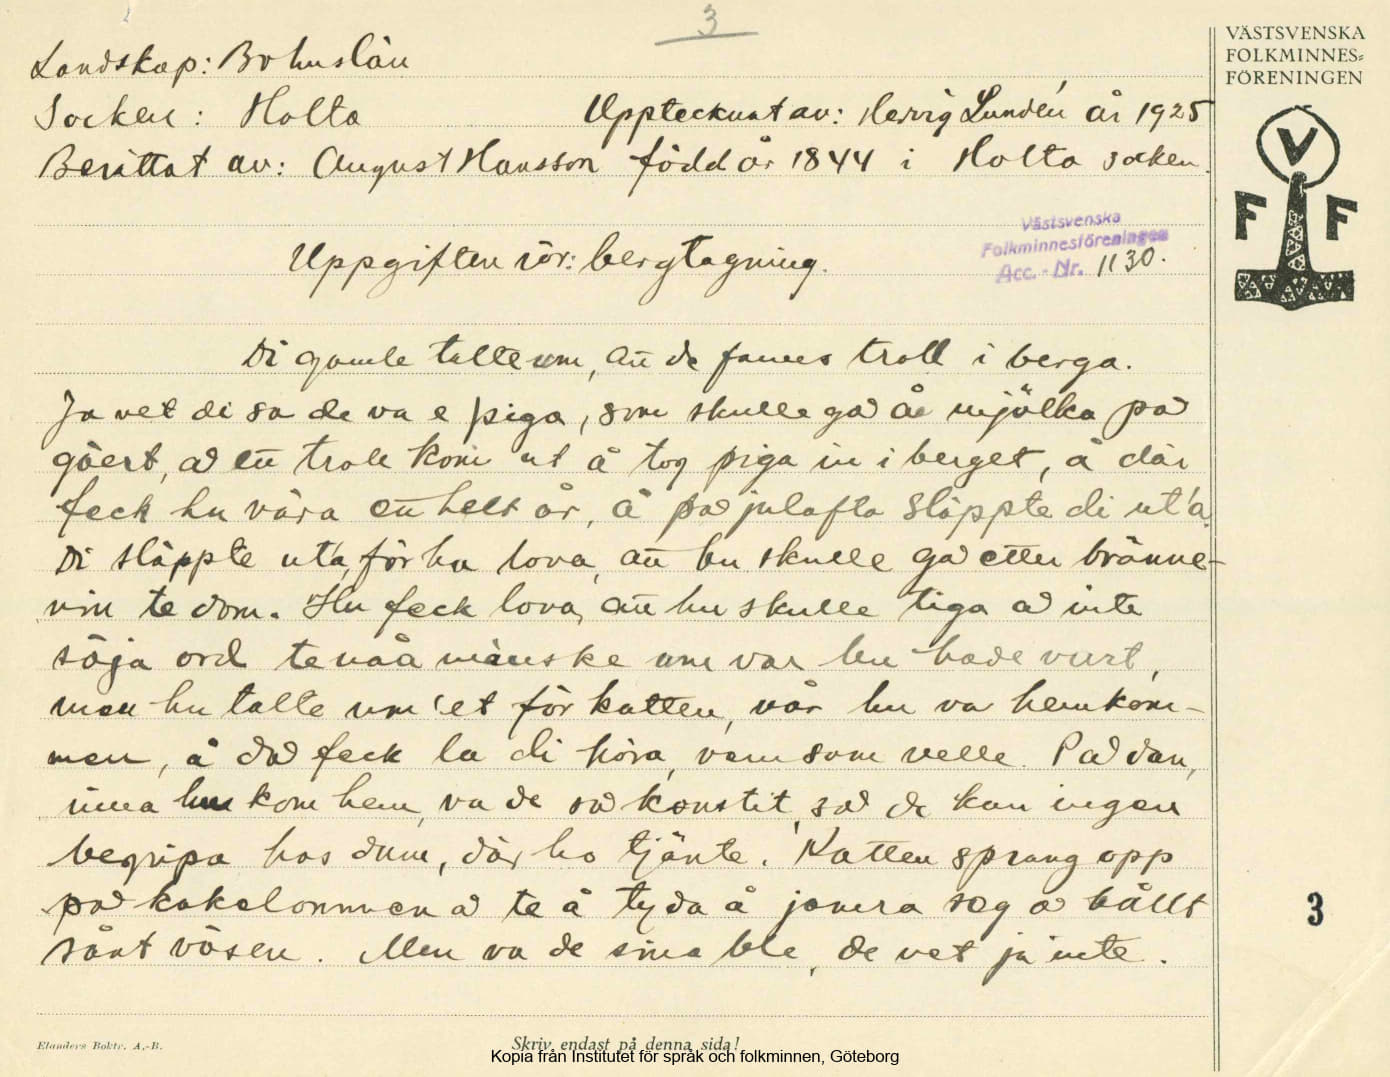 3
VÄSTSVENSKA
FOLKMINNES=
FÖRENINGEN
V
F F
Landskap: Bohuslän
Socken: Holta Upptecknat av: Hervig Lundén år 1925
Berättat av: August Hansson född år 1844 i Holta socken.
Västsvenska
Folkminnesföreningen
Acc. - Nr. 1130.
Uppgiften rör: bergtagning.
Di gamle talte um, att de fanns troll i berga.
Ja vet di sa de va e piga, som skulle ga å mjölka på
gäert, å ett troll kom ut å tog piga in i berget, å där
feck hu vära ett helt år, å på julafta släppte di ut'a.
Di släppte uta, för ho lova, att hu skulle ga etter bränne-
vin te dom. Hu feck lova, att hu skulle tiga å inte
säja ord te nåa mänske um var hu hade vurt,
men hu talte um 'et för katten, når hu va hemkom-
men, å då feck la di höra, vem som velle. På dan,
inna hu kom hem, va de så konstit, så de kan ingen
begripa hos dum, där ho tjänte. Katten sprang opp
på kakelonnen å te å tyda å jamra seg å hållt
sånt väsen. Men va de sina ble, de vet ja inte.
3
Elanders Boktr. A.-B.
Skriv endast på denna sida!
Kopia från Institutet för språk och folkminnen, Göteborg